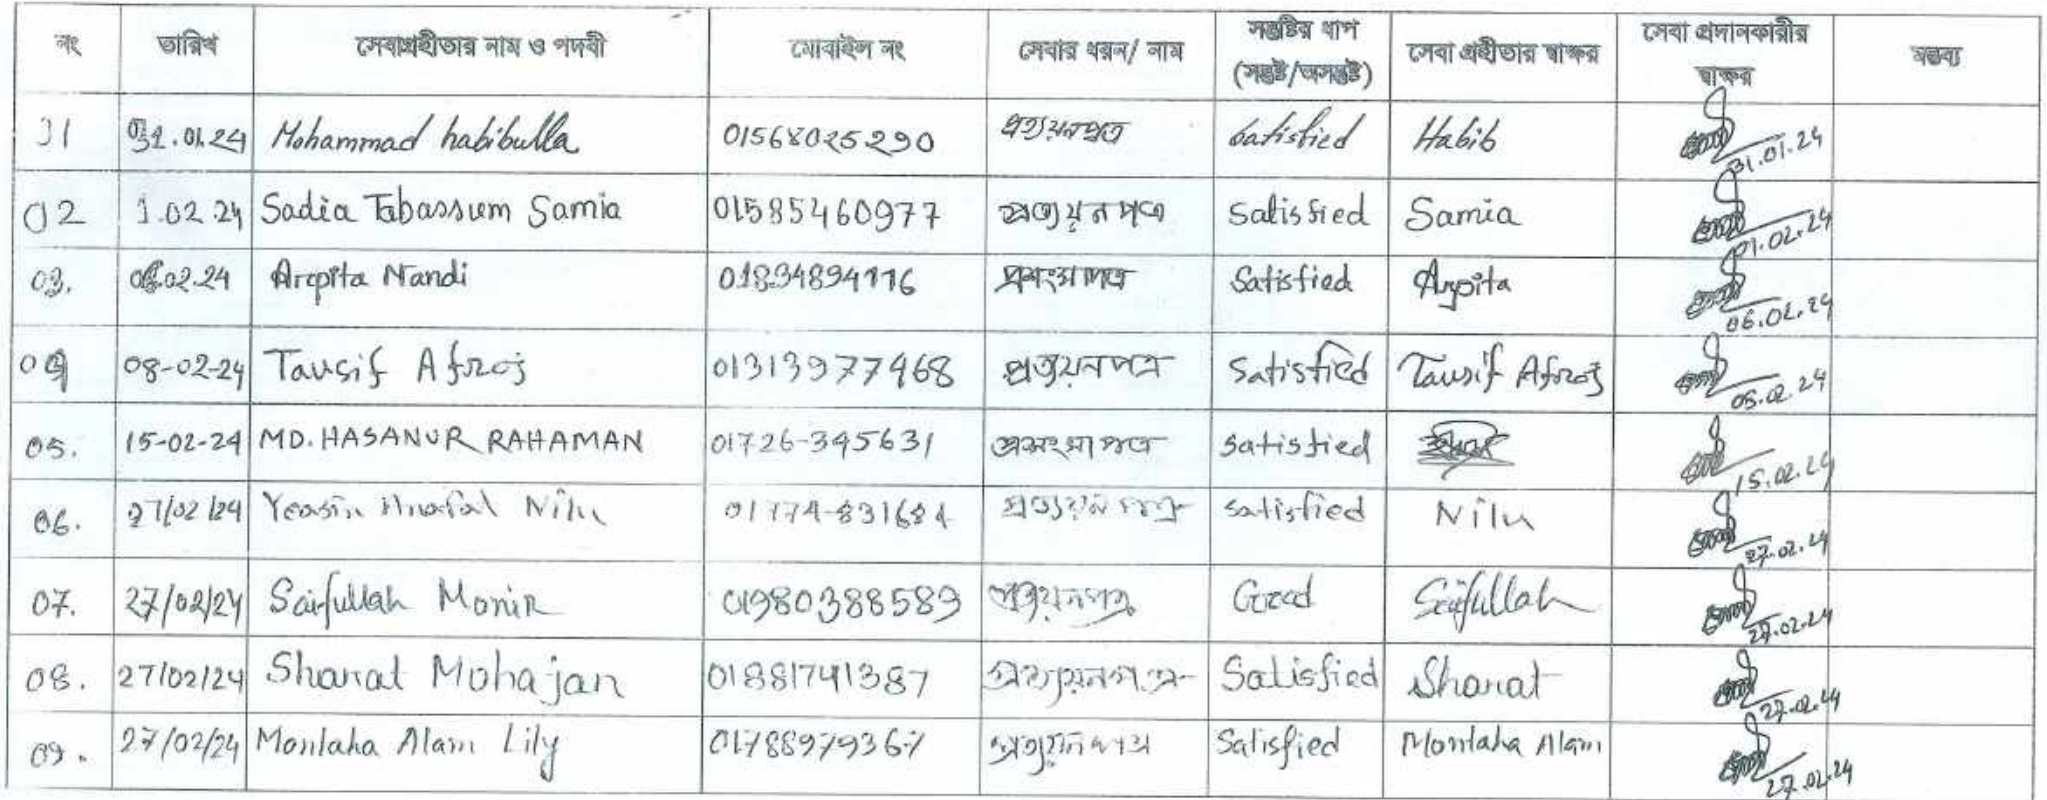 নং তারিখ সেবাগ্রহীতার নাম ও পদবী মোবাইল নং সেবার ধরন/ নাম সন্তুষ্টির ধাপ (সন্তুষ্ট/অসন্তুষ্ট) সেবা গ্রহীতার স্বাক্ষর সেবা প্রদানকারীর স্বাক্ষর মন্তব্য
01 31.01.24 Mohammad habibulla 01568025290 প্রত্যয়নপত্র satisfied Habib 31.01.24
02 1.02.24 Sadia Tabassum Samia 01585460977 প্রত্যয়নপত্র Satisfied Samia 01.02.24
03. 02.24 Arpita Nandi 01834894116 প্রশংসাপত্র Satisfied Arpita 06.02.24
04 08-02-24 Tausif Afroj 01313977468 প্রত্যয়নপত্র Satisfied Tausif Afroj 02.24
05. 15-02-24 MD. HASANUR RAHAMAN 01726-345631 প্রসংসাপত্র satisfied 15.02.24
06. 27/02/24 Nilu 01774-831684 প্রত্যয়নপত্র satisfied Nilu 27.02.24
07. 27/02/24 Saifullah Monir 01980388589 প্রত্যয়নপত্র Good Saifullah 27.02.24
08. 27/02/24 Sharat Mohajan 01881741387 প্রত্যয়নপত্র Satisfied Sharat 27.02.24
09. 27/02/24 Montaha Alam Lily 01788979367 প্রত্যয়নপত্র Satisfied Montaha Alam 27.02.24